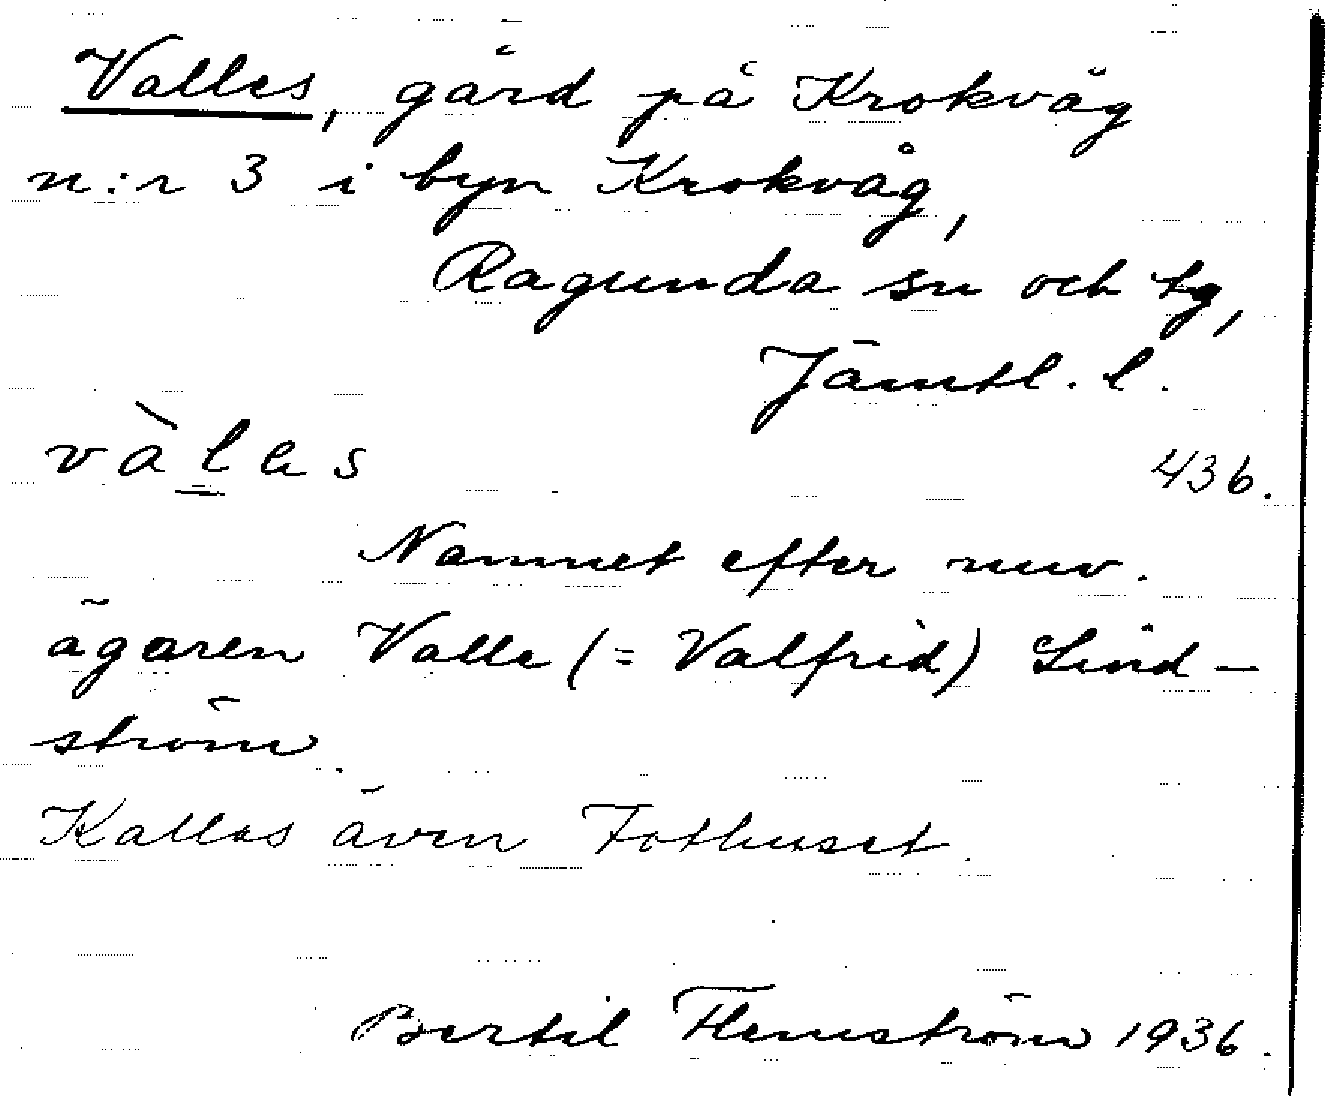 Valles, gård på Krokvåg
n:r 3 i byn Krokvåg,
Ragunda sn och tg,
Jämtl. l.
vàlas 436.
Namnet efter nuv.
ägaren Valle (= Valfrid) Lind-
ström.
Kallas även Fothuset.
Bertil Flemström 1936.